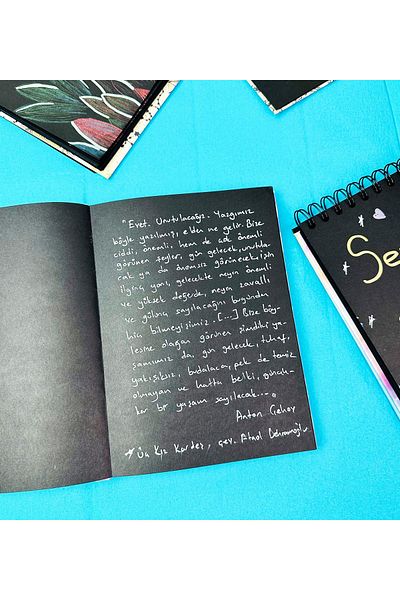 "Evet. Unutulacağız. Yazgımız
böyle yazılmış, elden ne gelir. Bize
ciddi, önemli, hem de çok önemli
görünen şeyler, gün gelecek, unutula-
cak ya da önemsiz görünecek. İşin
ilginç yanı, gelecekte neyin önemli
ve yüksek değerde, neyin zavallı
ve gülünç sayılacağını bugünden
hiç bilmeyişimiz. [...] Bize böy-
lesine olağan görünen şimdiki ya-
şamımız da, gün gelecek, tuhaf,
yakışıksız, budalaca, pek de temiz
olmayan ve hatta belki, günah-
kar bir yaşam sayılacak..."
Anton Çehov
* Üç Kız Kardeş, çev. Ataol Behramoğlu
Se